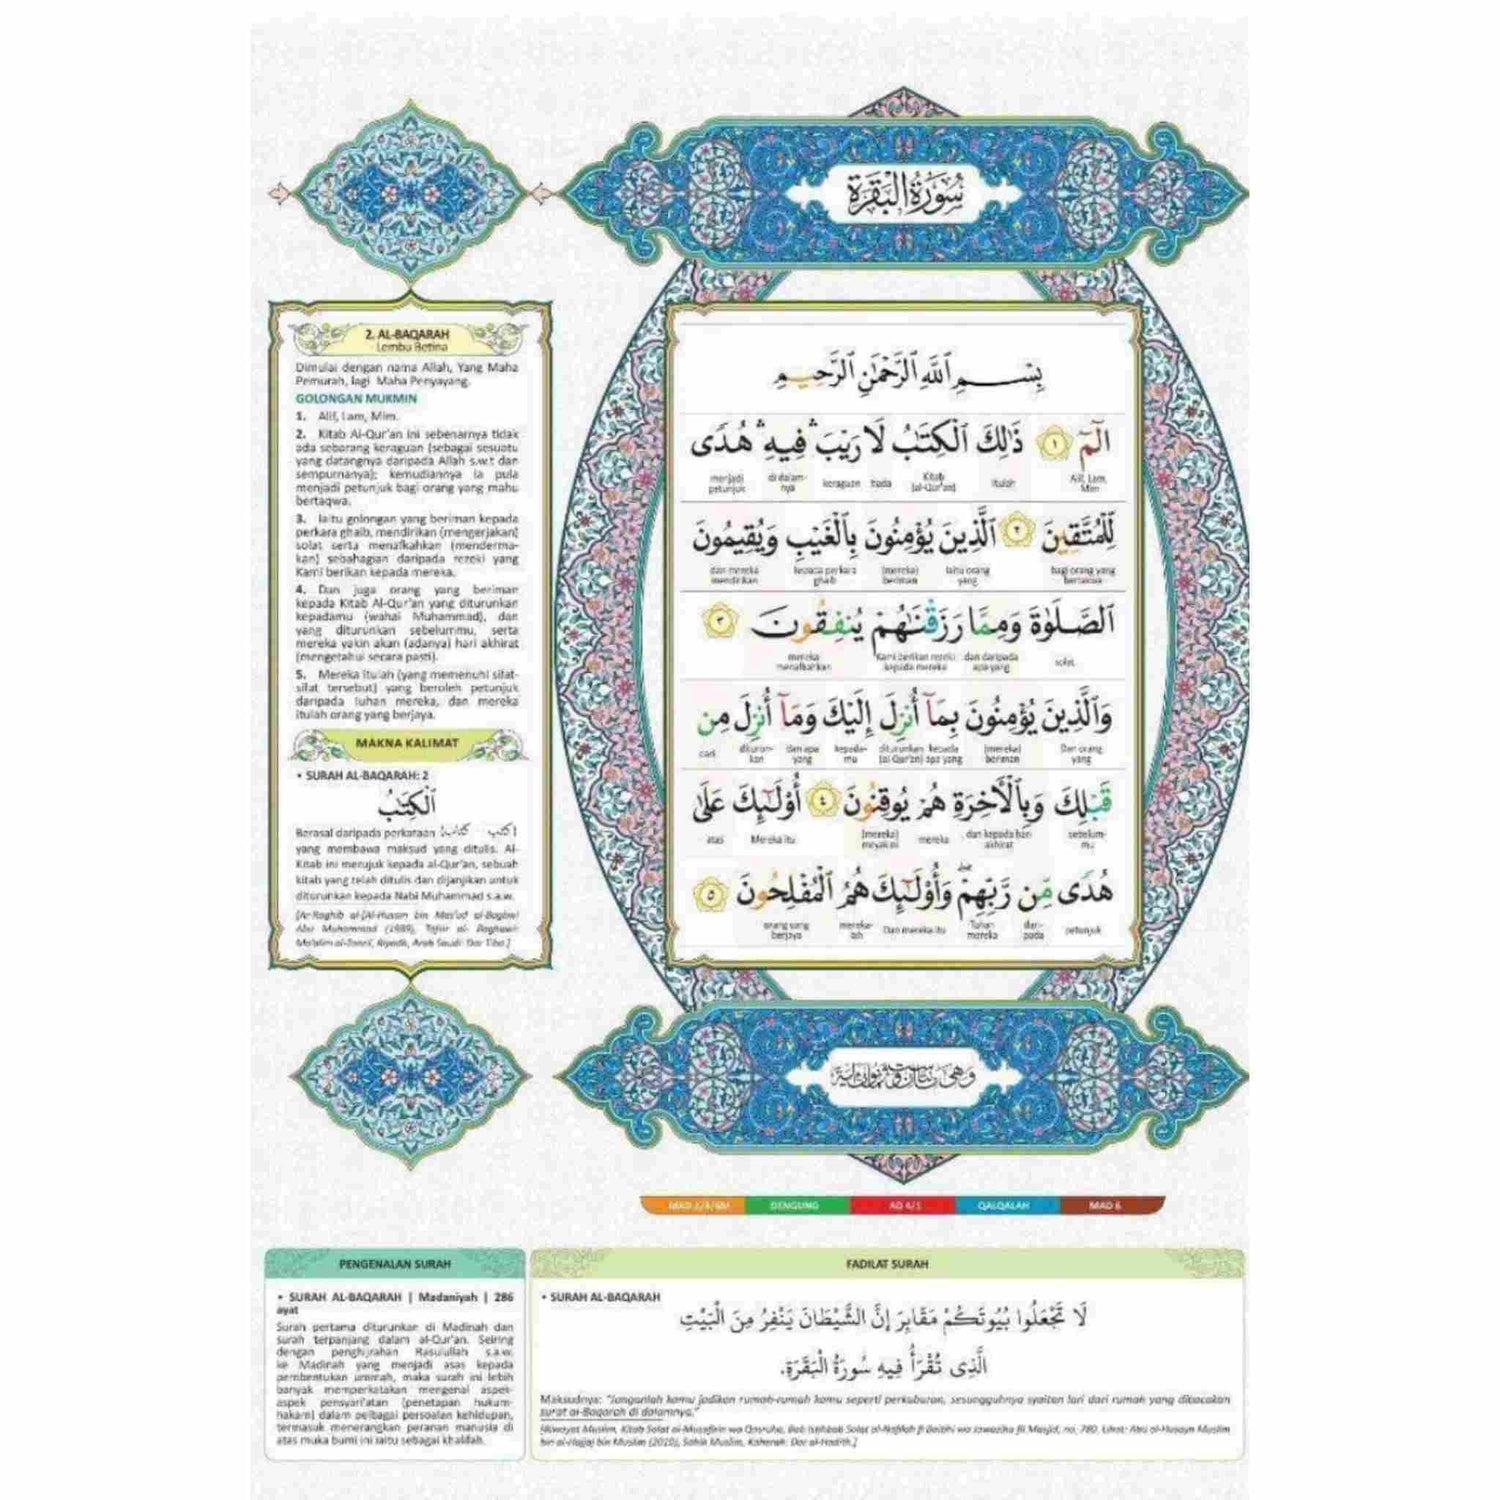 سُورَةُ الْبَقَرَةِ
2. AL-BAQARAH
Lembu Betina
Dimulai dengan nama Allah, Yang Maha
Pemurah, lagi Maha Penyayang.
GOLONGAN MUKMIN
1. Alif, Lam, Mim.
2. Kitab Al-Qur'an ini sebenarnya tidak
ada sebarang keraguan (sebagai sesuatu
yang datangnya daripada Allah s.w.t dan
sempurnanya); kemudiannya ia pula
menjadi petunjuk bagi orang yang mahu
bertaqwa.
3. Iaitu golongan yang beriman kepada
perkara ghaib, mendirikan (mengerjakan)
solat serta menafkahkan (menderma-
kan) sebahagian daripada rezeki yang
Kami berikan kepada mereka.
4. Dan juga orang yang beriman
kepada Kitab Al-Qur'an yang diturunkan
kepadamu (wahai Muhammad), dan
yang diturunkan sebelummu, serta
mereka yakin akan (adanya) hari akhirat
(mengetahui secara pasti).
5. Mereka itulah (yang memenuhi sifat-
sifat tersebut) yang beroleh petunjuk
daripada Tuhan mereka, dan mereka
itulah orang yang berjaya.
MAKNA KALIMAT
• SURAH AL-BAQARAH: 2
الْكِتَٰبُ
Berasal daripada perkataan
yang membawa maksud yang ditulis. Al-
Kitab ini merujuk kepada al-Qur'an, sebuah
kitab yang telah ditulis dan dijanjikan untuk
diturunkan kepada Nabi Muhammad s.a.w.
[Ar-Raghib al-[Al-Husain bin Mas'ud al-Baghwi
Abu Muhammad (1989), Tafsir al- Baghawi:
Ma'alim al-Tanzil, Riyadh, Arab Saudi: Dar Tiba.]
بِسْمِ ٱللَّهِ ٱلرَّحْمَٰنِ ٱلرَّحِيمِ
الٓمٓ ١ ذَٰلِكَ ٱلْكِتَٰبُ لَا رَيْبَ ۛ فِيهِ ۛ هُدًى
menjadi petunjuk di dalam-nya keraguan tiada Kitab (al-Qur'an) Itulah Alif, Lam, Mim
لِّلْمُتَّقِينَ ٢ ٱلَّذِينَ يُؤْمِنُونَ بِٱلْغَيْبِ وَيُقِيمُونَ
dan mereka mendirikan kepada perkara ghaib (mereka) beriman Iaitu orang yang bagi orang yang bertakwa
ٱلصَّلَوٰةَ وَمِمَّا رَزَقْنَٰهُمْ يُنفِقُونَ ٣
mereka menafkahkan Kami berikan rezeki kepada mereka dan daripada apa yang solat
وَٱلَّذِينَ يُؤْمِنُونَ بِمَآ أُنزِلَ إِلَيْكَ وَمَآ أُنزِلَ مِن
dari diturun-kan dan apa yang kepada-mu diturunkan (al-Qur'an) kepada apa yang (mereka) beriman Dan orang yang
قَبْلِكَ وَبِٱلْأٓخِرَةِ هُمْ يُوقِنُونَ ٤ أُو۟لَٰٓئِكَ عَلَىٰ
atas Mereka itu (mereka) meyakini mereka dan kepada hari akhirat sebelum-mu
هُدًى مِّن رَّبِّهِمْ ۖ وَأُو۟لَٰٓئِكَ هُمُ ٱلْمُفْلِحُونَ ٥
orang yang berjaya mereka-lah Dan mereka itu Tuhan mereka dari-pada petunjuk
MAD 2/4/6M DENGUNG AD 4/5 QALQALAH MAD 6
PENGENALAN SURAH
• SURAH AL-BAQARAH | Madaniyah | 286
ayat
Surah pertama diturunkan di Madinah dan
surah terpanjang dalam al-Qur'an. Seiring
dengan penghijrahan Rasulullah s.a.w.
ke Madinah yang menjadi asas kepada
pembentukan ummah, maka surah ini lebih
banyak memperkatakan mengenai aspek-
aspek pensyari'atan (penetapan hukum-
hakam) dalam pelbagai persoalan kehidupan,
termasuk menerangkan peranan manusia di
atas muka bumi ini iaitu sebagai khalifah.
FADILAT SURAH
• SURAH AL-BAQARAH
لَا تَجْعَلُوا بُيُوتَكُمْ مَقَابِرَ إِنَّ الشَّيْطَانَ يَنْفِرُ مِنَ الْبَيْتِ
الَّذِى تُقْرَأُ فِيهِ سُورَةُ الْبَقَرَةِ.
Maksudnya: "Janganlah kamu jadikan rumah-rumah kamu seperti perkuburan, sesungguhnya syaitan lari dari rumah yang dibacakan
surat al-Baqarah di dalamnya."
[Riwayat Muslim, Kitab Solat al-Musafirin wa Qasruha, Bab Istihbab Solat al-Nafilah fi Baitihi wa Jawaziha fil Masjid, no, 780. Lihat: Abu al-Husayn Muslim
bin al-Hajjaj bin Muslim (2010), Sahih Muslim, Kaherah: Dar al-Hadith.]